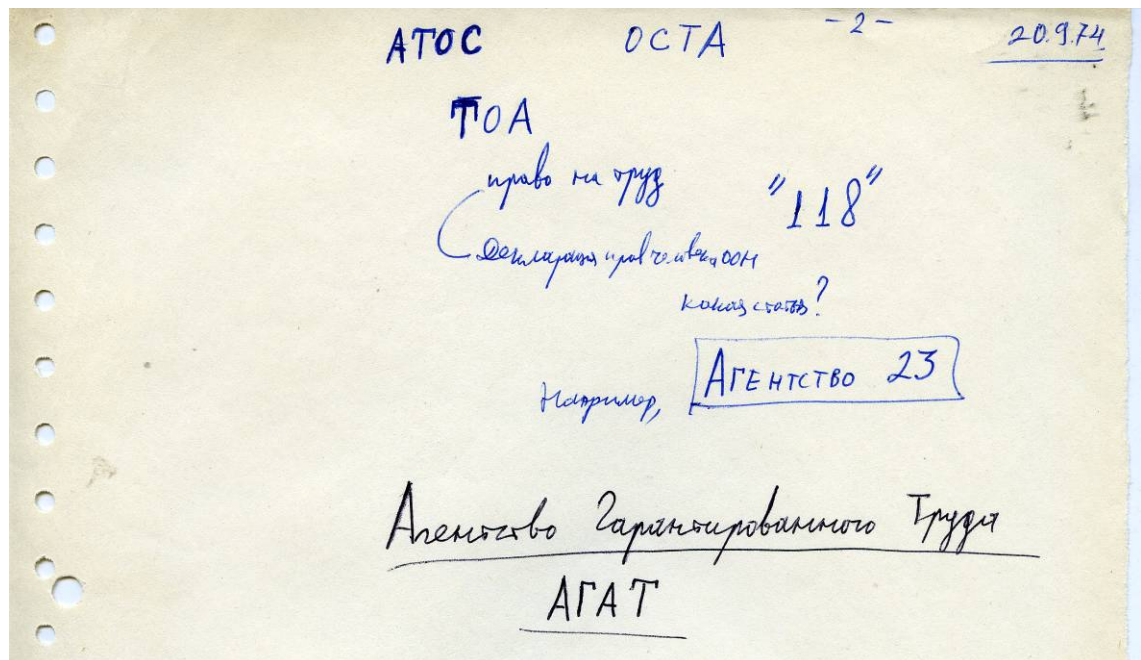 АТОС ОСТА -2- 20.9.74
ТОА
право на труд "118"
Декларация прав человека ООН
какая статья?
Например, Агентство 23
Агентство Гарантированного Труда
АГАТ